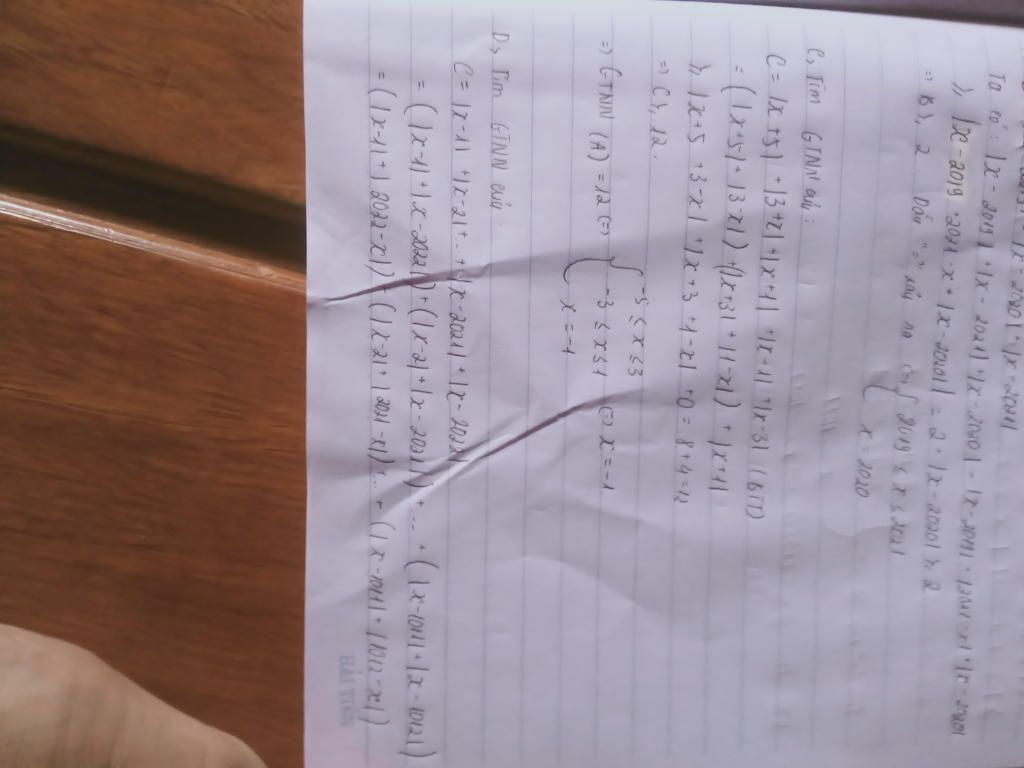 Ta có: |x - 2019| + |x - 2021| + |x - 2020| = |x - 2019| + |2021 - x| + |x - 2020|
≥ |x - 2019 + 2021 - x| + |x - 2020| = 2 + |x - 2020| ≥ 2
=> B ≥ 2. Dấu "=" xảy ra <=> { 2019 ≤ x ≤ 2021
x = 2020
C, Tìm GTNN của:
C = |x+5| + |3+x| + |x+1| + |x-1| + |x-3| (5TT)
= (|x+5| + |3-x|) + (|x+3| + |1-x|) + |x+1|
≥ |x+5 + 3-x| + |x+3 + 1-x| + 0 = 8 + 4 = 12
=> C ≥ 12.
=> GTNN (A) = 12 <=> { -5 ≤ x ≤ 3
-3 ≤ x ≤ 1 <=> x = -1
x = -1
D, Tìm GTNN của:
C = |x-1| + |x-2| + ... + |x-2021| + |x-2022|
= (|x-1| + |x-2022|) + (|x-2| + |x-2021|) + ... + (|x-1011| + |x-1012|)
= (|x-1| + |2022-x|) + (|x-2| + |2021-x|) ... + (|x-1011| + |1012-x|)
HẢI TIẾN